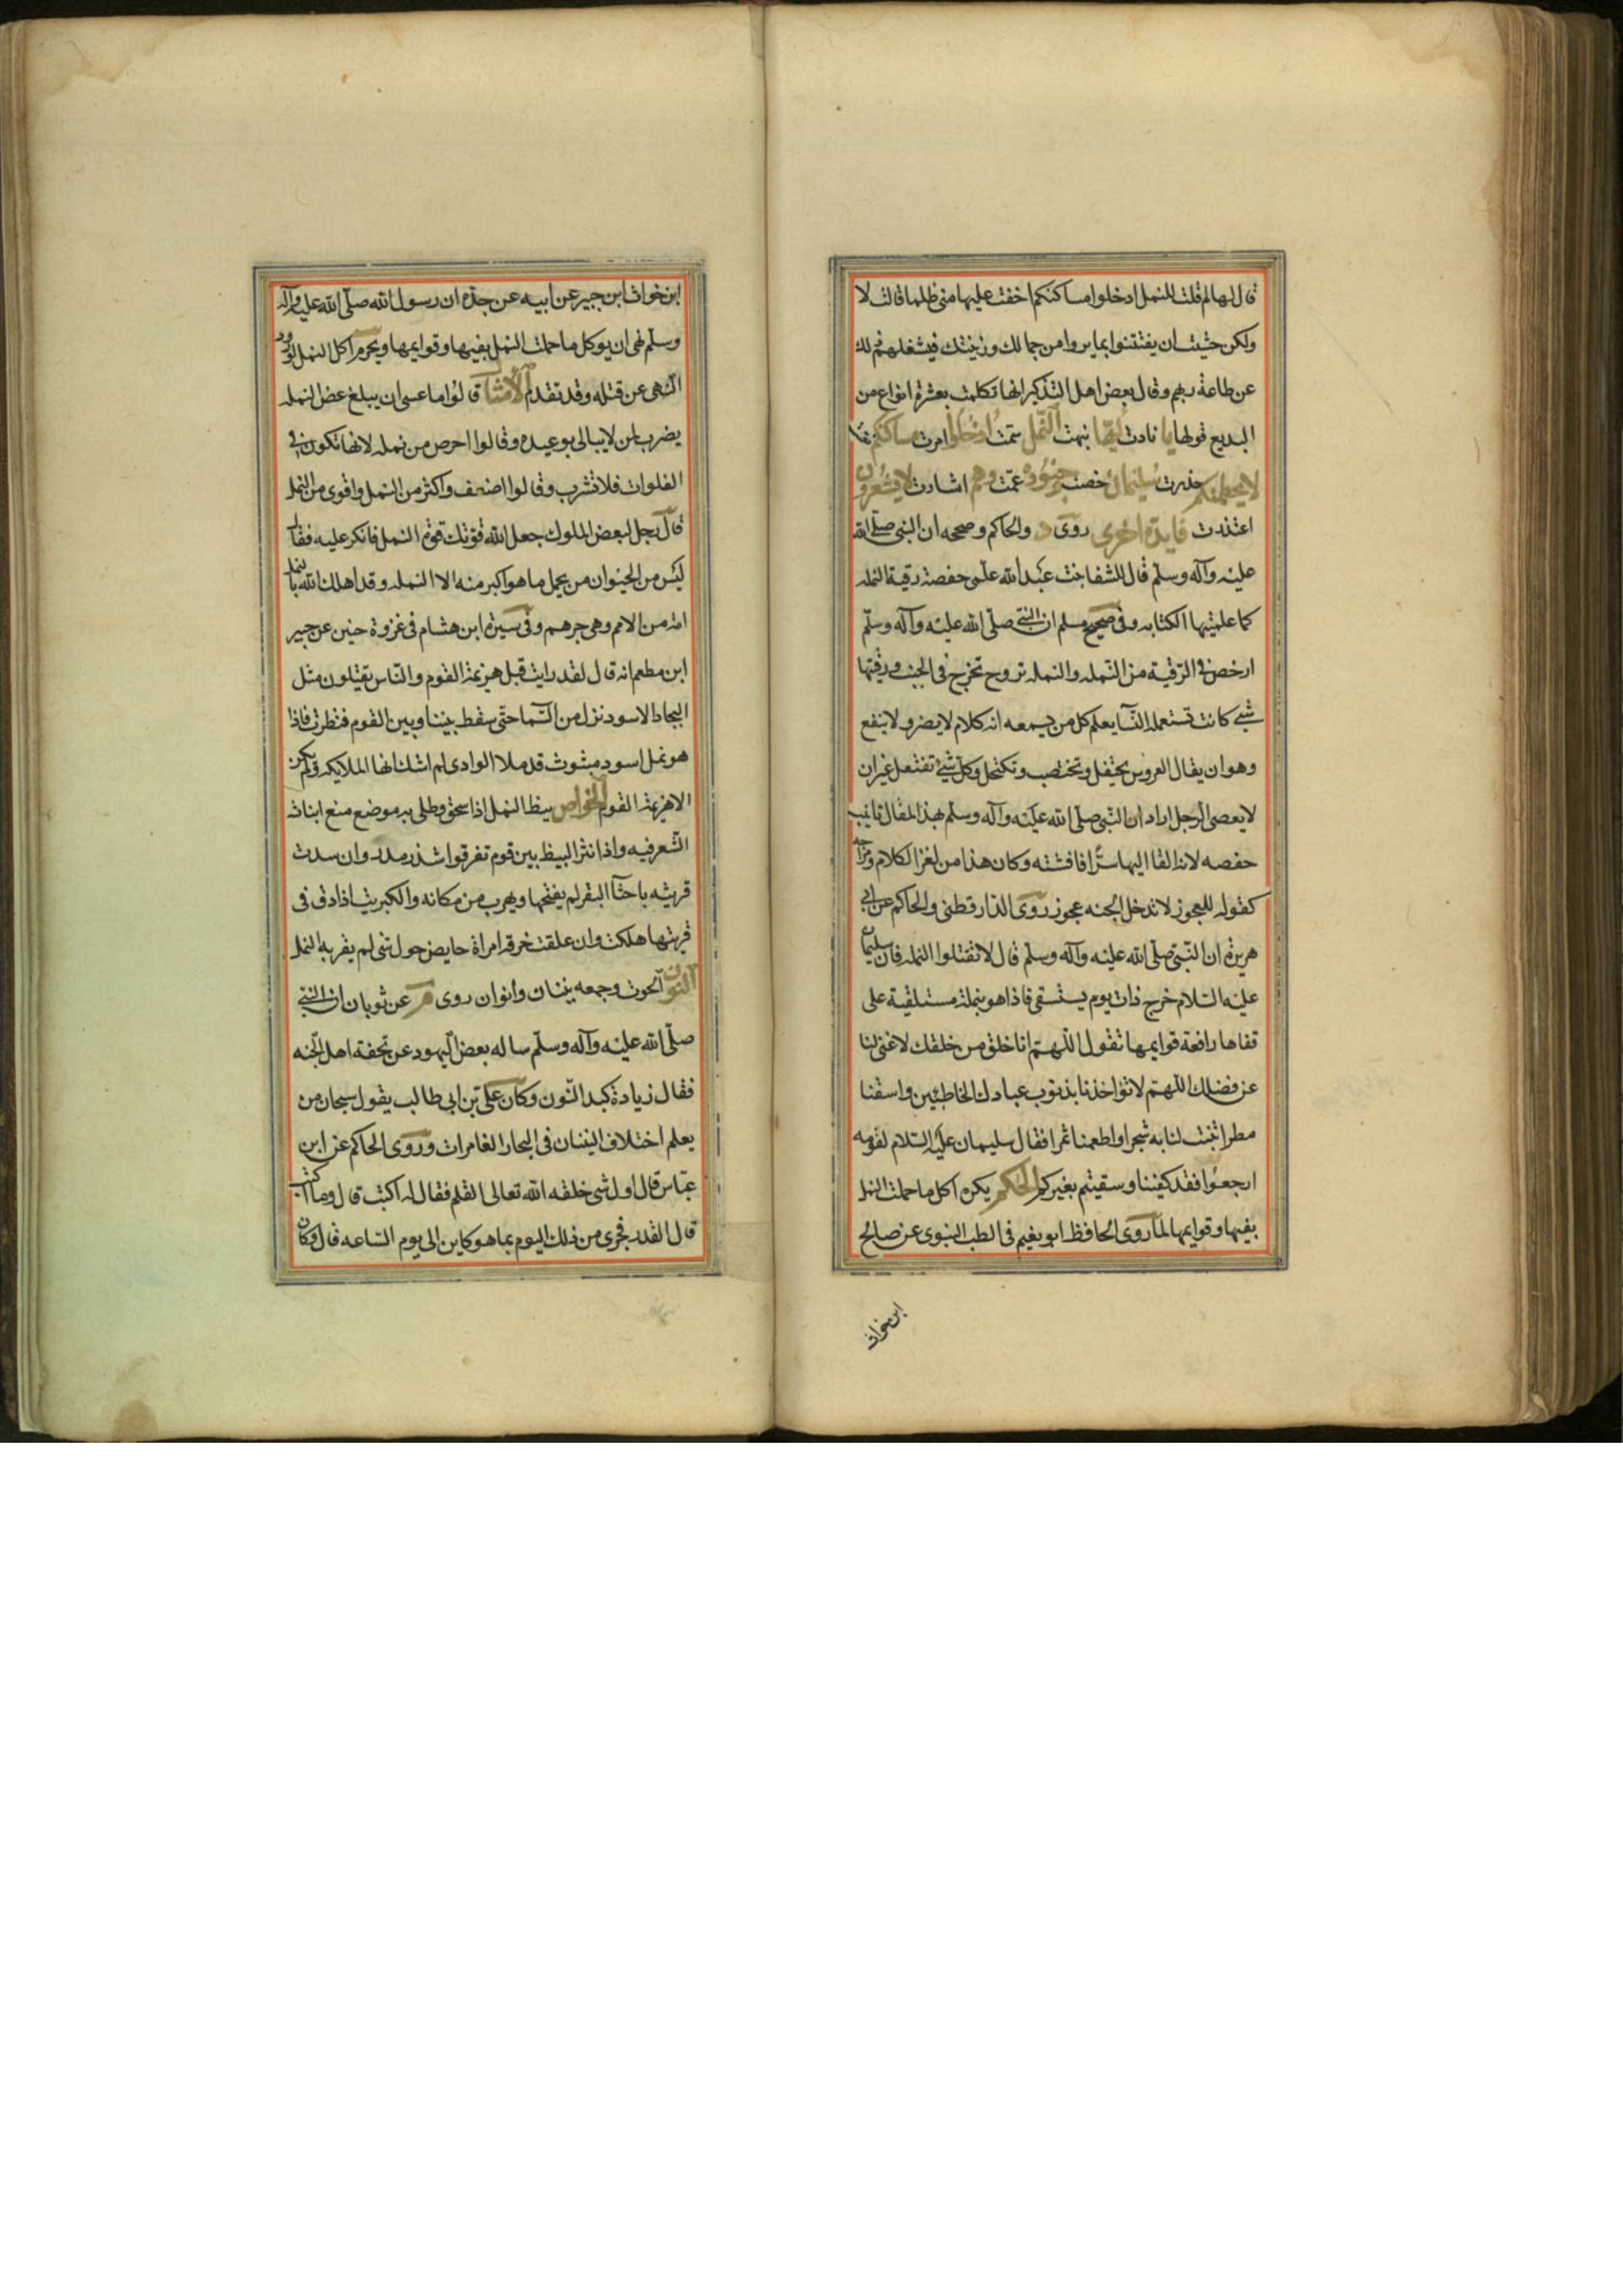 قال لها لم قلت للنمل ادخلوا مساكنكم اخفت عليها منى ظلما قالت لا
ولكن خشيت ان يفتتنوا بما يروا من جمالك وزينتك فيشغلهم ذلك
عن طاعة ربهم وقال بعض اهل التذكير انها تكلمت بعشرة انواع من
البديع قولها يا نادت ايها نبهت النمل سمت ادخلوا امرت مساكنكم
لا يحطمنكم حذرت سليمان خصت وجنوده عمت وهم اشارت لا يشعرون
اعتذرت فايدة اخرى روى د والحاكم وصححه ان النبى صلى الله
عليه وآله وسلم قال للشفا بنت عبد الله علمى حفصة رقية النمله
كما علمتيها الكتابه وفى صحيح مسلم ان النبى صلى الله عليه وآله وسلم
ارخص فى الرقية من النمله والنمله تروح تخرج فى الجنب ورقيتها
شىء كانت تستعمله النسآ يعلم كل من يسمعه انه كلام لا يضر ولا ينفع
وهو ان يقال العروس تحتفل وتختضب وتكتحل وكل شىء تفتعل غير ان
لا تعصى الرجل اراد ان النبى صلى الله عليه وآله وسلم بهذا المقال تانيب
حفصه لانه القا اليها سرا فافشته وكان هذا من لغز الكلام ومزاحه
كقوله للعجوز لا تدخل الجنه عجوز روى الدارقطنى والحاكم عن ابى
هريرة ان النبى صلى الله عليه وآله وسلم قال لا تقتلوا النمله فان سليمان
عليه السلام خرج ذات يوم يستسقى فاذا هو بنملة مستلقية على
قفاها رافعة قوايمها تقول اللهم انا خلق من خلقك لا غنى لنا
عن فضلك اللهم لا تؤاخذنا بذنوب عبادك الخاطئين واسقنا
مطرا تنبت لنا به شجرا واطعمنا ثمرا فقال سليمان عليه السلام لقومه
ارجعوا فقد كفينا وسقيتم بغيركم الحكم يكره اكل ما حملت النمل
بفيها وقوايمها لما روى الحافظ ابو نعيم فى الطب النبوى عن صالح
ابن خوات
ابن خوات ابن جبير عن ابيه عن جده ان رسول الله صلى الله عليه وآله
وسلم نهى ان يوكل ما حملت النمل بفيها وقوايمها ويحرم اكل النمل لورود
النهى عن قتله وقد تقدم الامثا قالوا ما عسى ان يبلغ عض النمله
يضرب لمن لا يبالى بوعيده وقالوا احرص من نمله لانها تكون فى
الفلوات فلا تشرب وقالوا اضعف واكثر من النمل واقوى من النمل
قال رجل لبعض الملوك جعل الله قوتك قوة النمل فانكر عليه فقال
ليس من الحيوان من يحمل ما هو اكبر منه الا النمله وقد اهلك الله بالنمل
امة من الامم وهى جرهم وفى سيرة ابن هشام فى غزوة حنين عن جبير
ابن مطعم انه قال لقد رايت قبل هزيمة القوم والناس يقتلون مثل
البجاد الاسود نزل من السما حتى سقط بيننا وبين القوم فنظرت فاذا
هو نمل اسود مبثوث قد ملا الوادى لم اشك انها الملايكه ولم يكن
الا هزيمة القوم الخواص بيظ النمل اذا سحق وطلى به موضع منع انبات
الشعر فيه واذا نثر البيظ بين قوم تفرقوا شذر مدر وان سدت
قريته باخثآ البقر لم يفتحها ويهرب من مكانه والكبريت اذا دق فى
قريتها هلكت وان علقت خرقه امراة حايض حول شى لم يقربه النمل
النون الحوت وجمعه نينان وانوان روى م عن ثوبان ان النبى
صلى الله عليه وآله وسلم ساله بعض اليهود عن تحفة اهل الجنه
فقال زيادة كبد النون وكان على بن ابى طالب يقول سبحان من
يعلم اختلاف النينان فى البحار الغامرات وروى الحاكم عن ابن
عباس قال اول شى خلقه الله تعالى القلم فقال له اكتب قال وما اكتب
قال القدر فجرى من ذلك اليوم بما هو كاين الى يوم الساعه قال وكان